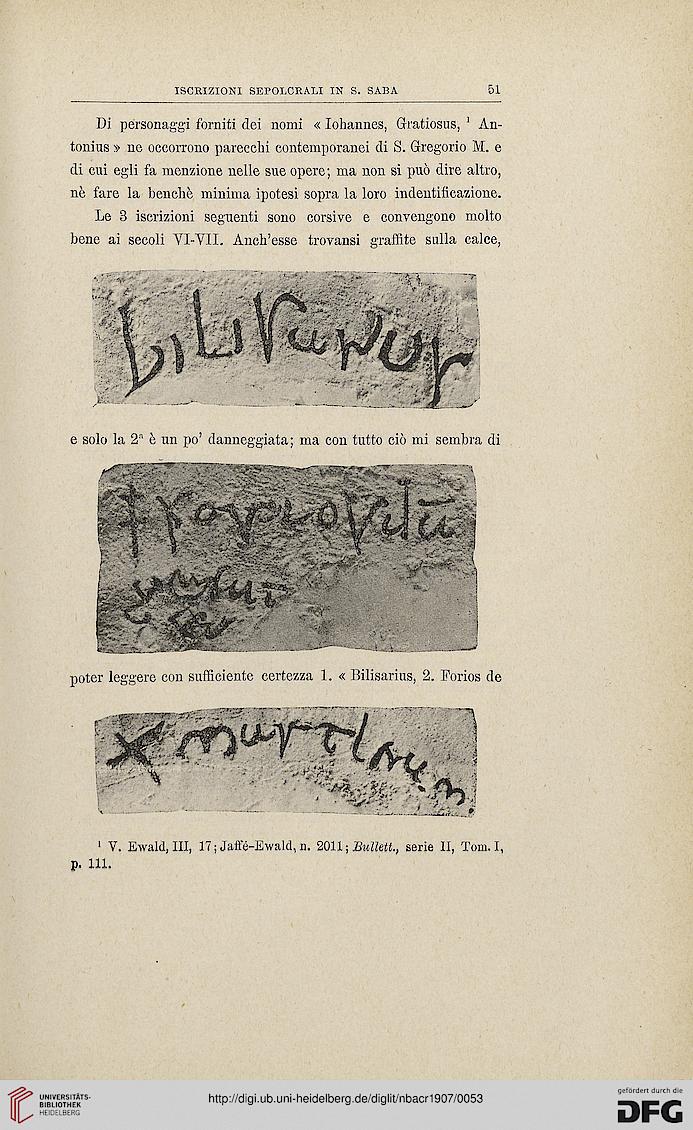 ISCRIZIONI SEPOLCRALI IN S. SABA 51
Di personaggi forniti dei nomi « Iohannes, Gratiosus, ¹ An-
tonius » ne occorrono parecchi contemporanei di S. Gregorio M. e
di cui egli fa menzione nelle sue opere; ma non si può dire altro,
nè fare la benchè minima ipotesi sopra la loro indentificazione.
Le 3 iscrizioni seguenti sono corsive e convengono molto
bene ai secoli VI-VII. Anch'esse trovansi graffite sulla calce,
e solo la 2ª è un po' danneggiata; ma con tutto ciò mi sembra di
poter leggere con sufficiente certezza 1. « Bilisarius, 2. Forios de
¹ V. Ewald, III, 17; Jaffé-Ewald, n. 2011; Bullett., serie II, Tom. I,
p. 111.
UNIVERSITÄTS-
BIBLIOTHEK
HEIDELBERG
http://digi.ub.uni-heidelberg.de/diglit/nbacr1907/0053
gefördert durch die
DFG